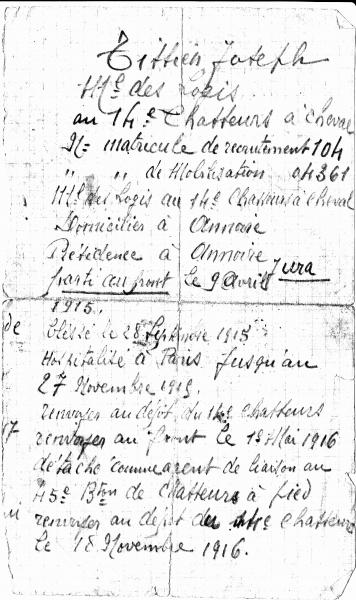 Tissien Joseph
Mal des Logis
au 14e Chasseurs à cheval
No matricule de recrutement 104
" " de Mobilisation 04361
Mal des Logis au 14e Chasseurs à cheval
Domicilier à Annoire
Résidence à Annoire
Jura
parti au front le 9 Avril
1915.
blessé le 28 Septembre 1915
Hospitalité à Paris Jusqu'au
27 Novembre 1915.
renvoyer au dépot du 14e chasseurs
renvoyer au front le 1er Mai 1916
détaché comme agent de liaison au
45e Bton de chasseurs à pied
renvoyer au dépot du 14e chasseurs
le 18 Novembre 1916.